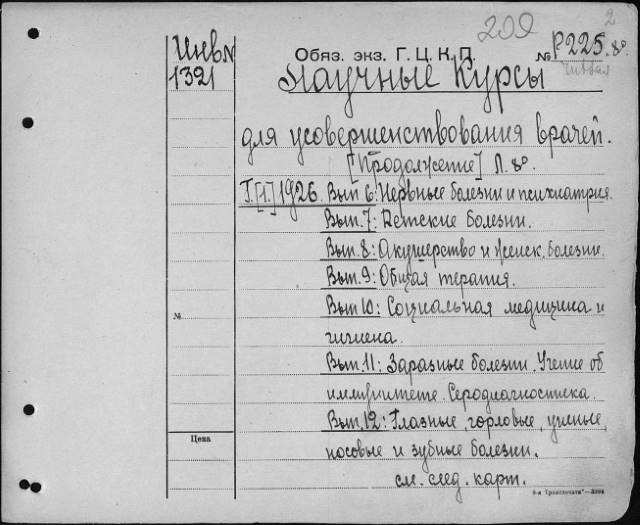 200 2
Инв№ 1321
Обяз. экз. Г.Ц.К.П. № Р225.8º
Научные Курсы
для усовершенствования врачей.
[Продолжение] Л. 8º.
Г.[1.] 1926. Вып 6: Нервные болезни и психиатрия.
Вып. 7: Детские болезни.
Вып. 8: Акушерство и женск. болезни.
Вып. 9: Общая терапия.
№ Вып 10: Социальная медицина и
гигиена.
Вып. 11: Заразные болезни. Учение об
иммунитете. Серодиагностика.
Вып. 12: Глазные, горловые, ушные,
Цена
носовые и зубные болезни.
см. след. карт.